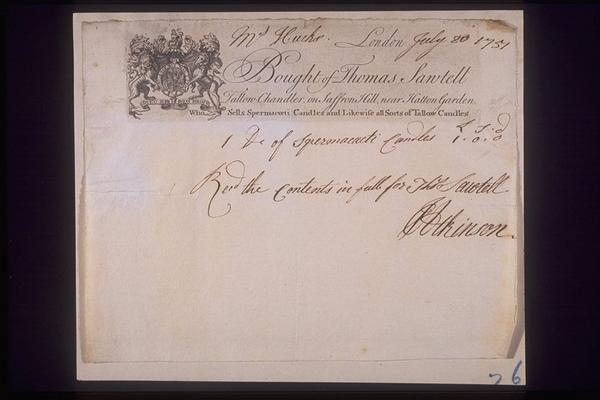 Mrs Hucks. London July 20 1751
Bought of Thomas Sawtell
Tallow Chandler, on Saffron Hill, near Hatton Garden.
Who Sells Spermacœti Candles and Likewise all Sorts of Tallow Candles
£ S d
1 Dz of Spermacæti Candles 1. 0. 0
Recd the Contents in full for Thos Sawtell
Atkinson.
26